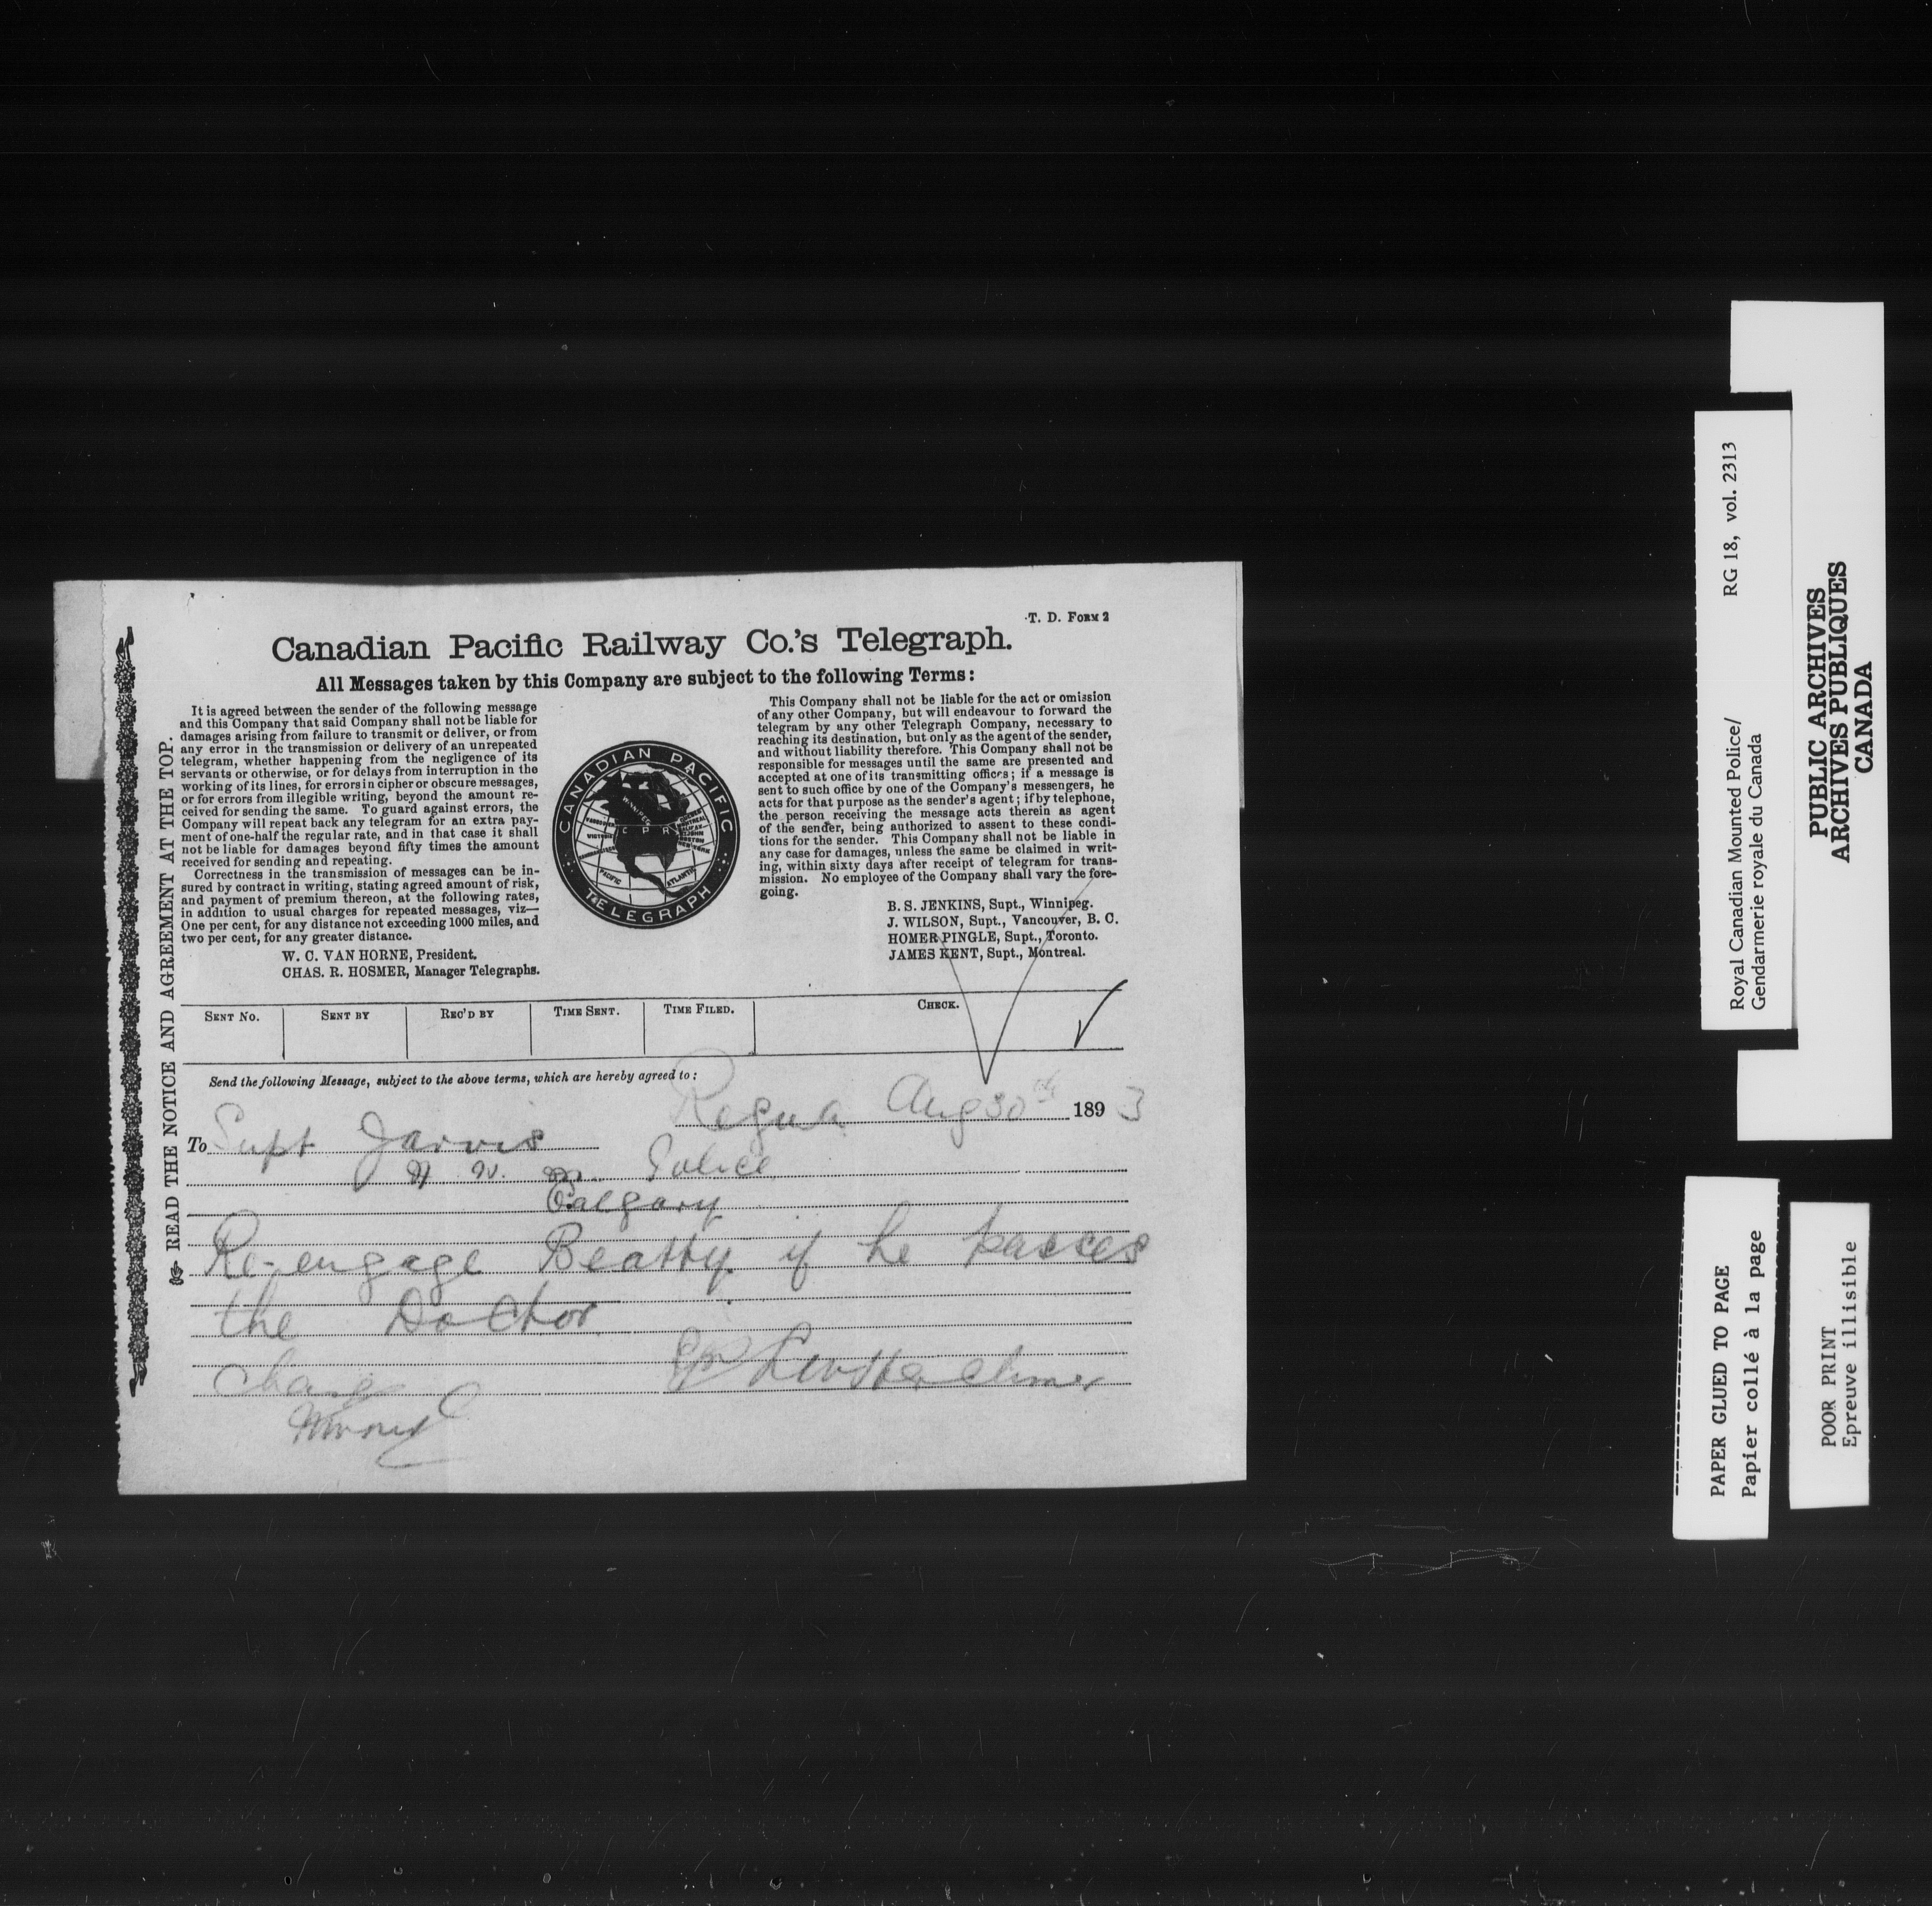 T. D. FORM 2
Canadian Pacific Railway Co.'s Telegraph.
All Messages taken by this Company are subject to the following Terms:
It is agreed between the sender of the following message
and this Company that said Company shall not be liable for
damages arising from failure to transmit or deliver, or from
any error in the transmission or delivery of an unrepeated
telegram, whether happening from the negligence of its
servants or otherwise, or for delays from interruption in the
working of its lines, for errors in cipher or obscure messages,
or for errors from illegible writing, beyond the amount re-
ceived for sending the same. To guard against errors, the
Company will repeat back any telegram for an extra pay-
ment of one-half the regular rate, and in that case it shall
not be liable for damages beyond fifty times the amount
received for sending and repeating.
Correctness in the transmission of messages can be in-
sured by contract in writing, stating agreed amount of risk,
and payment of premium thereon, at the following rates,
in addition to usual charges for repeated messages, viz—
One per cent, for any distance not exceeding 1000 miles, and
two per cent, for any greater distance.
W. C. VAN HORNE, President.
CHAS. R. HOSMER, Manager Telegraphs.
CANADIAN PACIFIC
TELEGRAPH
WINNIPEG
VANCOUVER
C P R
PACIFIC
ATLANTIC
This Company shall not be liable for the act or omission
of any other Company, but will endeavour to forward the
telegram by any other Telegraph Company, necessary to
reaching its destination, but only as the agent of the sender,
and without liability therefore. This Company shall not be
responsible for messages until the same are presented and
accepted at one of its transmitting offices; if a message is
sent to such office by one of the Company's messengers, he
acts for that purpose as the sender's agent; if by telephone,
the person receiving the message acts therein as agent
of the sender, being authorized to assent to these condi-
tions for the sender. This Company shall not be liable in
any case for damages, unless the same be claimed in writ-
ing, within sixty days after receipt of telegram for trans-
mission. No employee of the Company shall vary the fore-
going.
B. S. JENKINS, Supt., Winnipeg.
J. WILSON, Supt., Vancouver, B. C.
HOMER PINGLE, Supt., Toronto.
JAMES KENT, Supt., Montreal.
READ THE NOTICE AND AGREEMENT AT THE TOP.
SENT NO. SENT BY REC'D BY TIME SENT. TIME FILED. CHECK.
Send the following Message, subject to the above terms, which are hereby agreed to:
Regina Aug 30th 1893
To Supt Jarvis
N W M Police
Calgary
Re-engage Beatty if he passes
the Doctor
Charge
Royal Canadian Mounted Police/ RG 18, vol. 2313
Gendarmerie royale du Canada
PUBLIC ARCHIVES
ARCHIVES PUBLIQUES
CANADA
PAPER GLUED TO PAGE
Papier collé à la page
POOR PRINT
Epreuve illisible